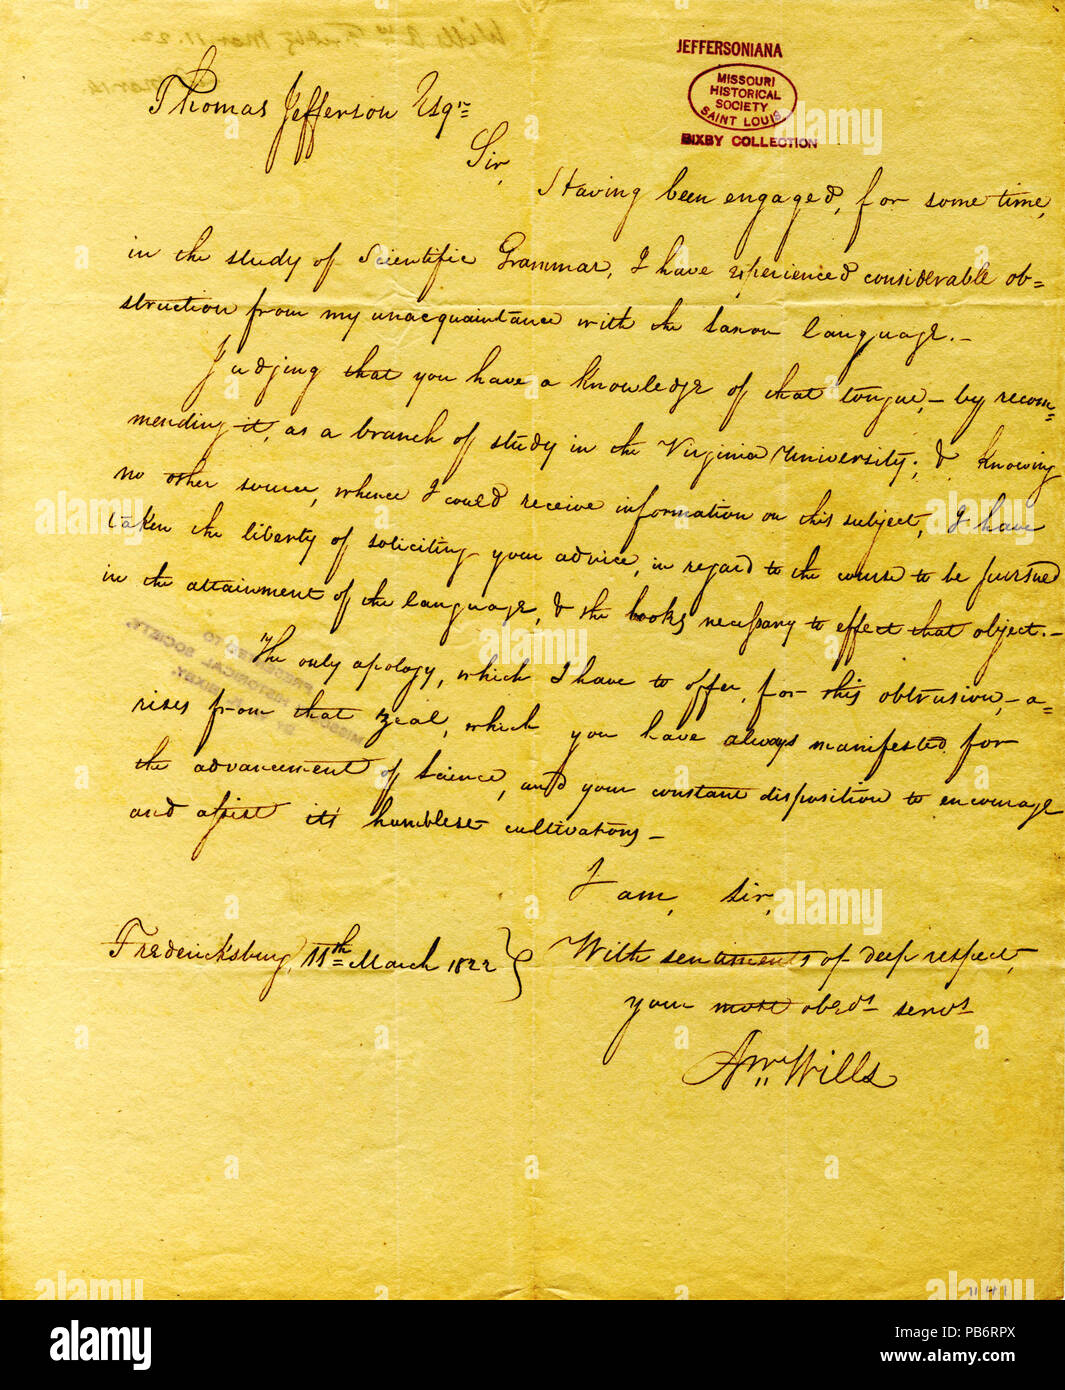 JEFFERSONIANA
MISSOURI
HISTORICAL
SOCIETY
SAINT LOUIS.
BIXBY COLLECTION
Thomas Jefferson Esqr
Sir,
Having been engaged, for some time,
in the study of Scientific Grammar, I have experienced considerable ob=
struction from my unacquaintance with the Saxon language.—
Judging that you have a knowledge of that tongue,— by recom=
mending it, as a branch of study in the Virginia University; & knowing
no other source, whence I could receive information on this subject, I have
taken the liberty of soliciting your advice, in regard to the course to be pursued
in the attainment of the language, & the books necessary to effect that object.—
The only apology, which I have to offer, for this obtrusion,— a=
rises from that zeal, which you have always manifested for
the advancement of Science, and your constant disposition to encourage
and assist its' humblest cultivators—
I am, sir,
With sentiments of deep respect,
Fredericksburg, 11th March 1822 }
your most obedt servt
Wills
PRESENTED TO
MISSOURI HISTORICAL SOCIETY.
BY
W. K. BIXBY.
alamy
Image ID: PB6RPX
www.alamy.com